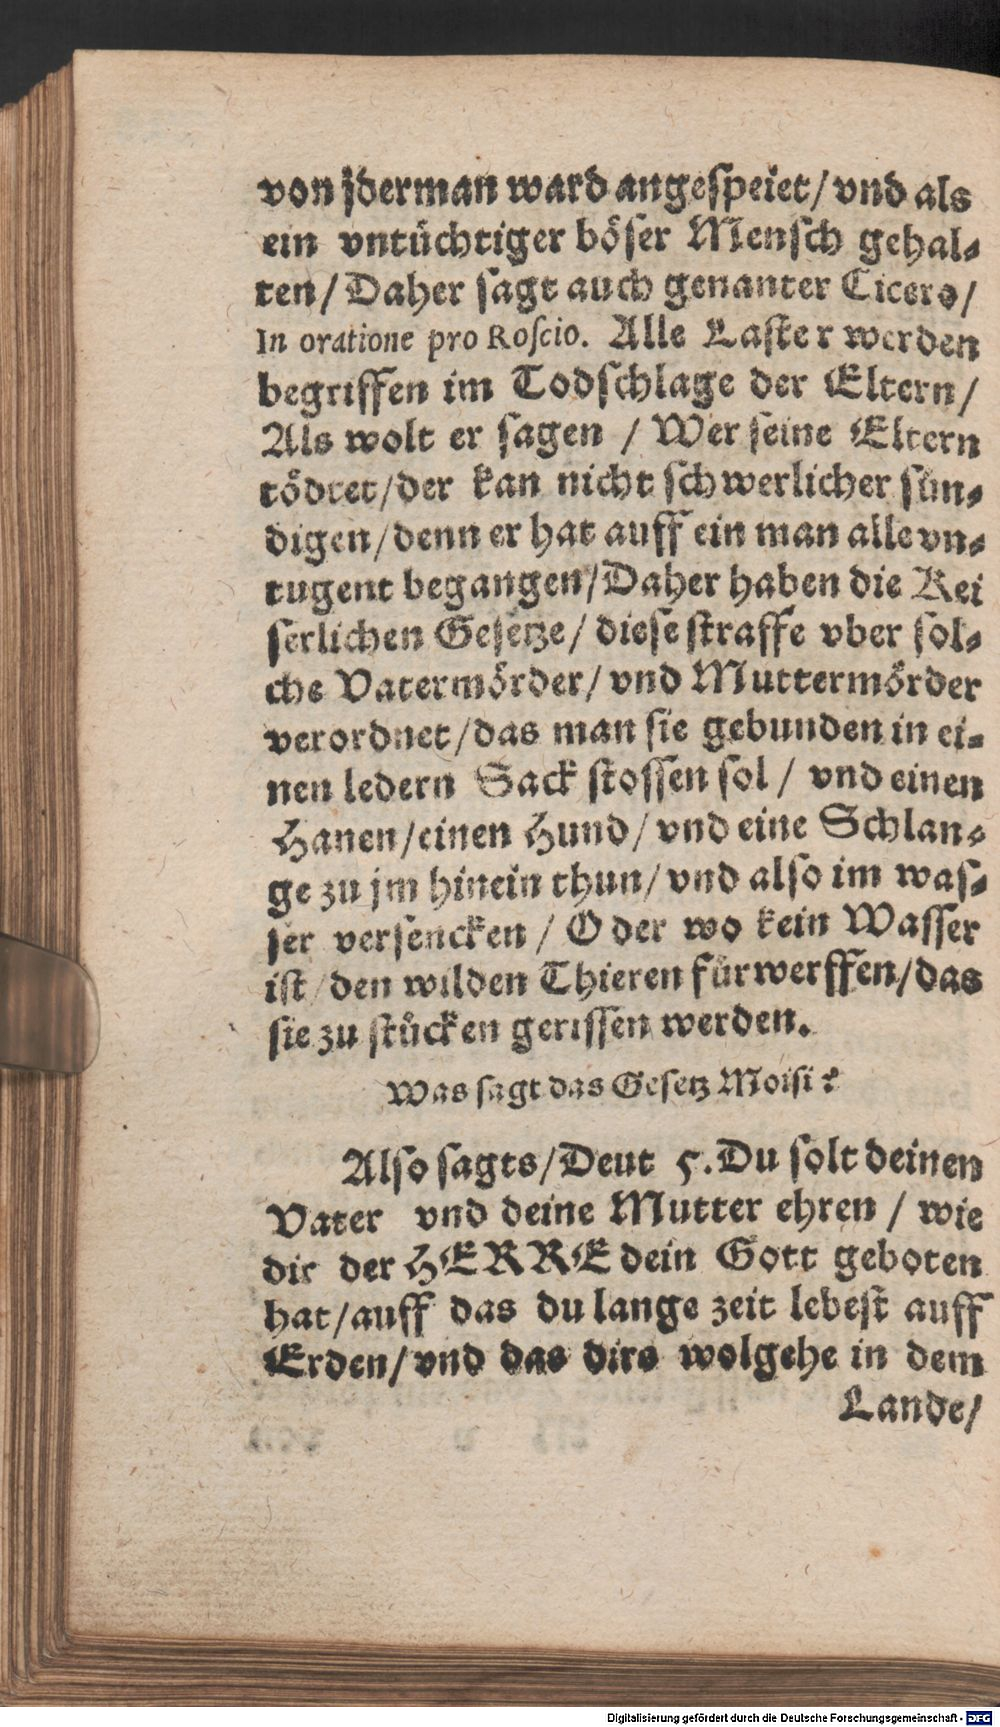 von jderman ward angespeiet/ vnd als
ein vntüchtiger böser Mensch gehal⸗
ten/ Daher sagt auch genanter Cicero/
In oratione pro Roscio. Alle Laster werden
begriffen im Todschlage der Eltern/
Als wolt er sagen / Wer seine Eltern
tödtet/der kan nicht schwerlicher sün⸗
digen/denn er hat auff ein man alle vn⸗
tugent begangen/Daher haben die Kei
serlichen Gesetze/ diese straffe vber sol⸗
che Vatermörder/ vnd Muttermörder
verordnet/das man sie gebunden in ei⸗
nen ledern Sack stossen sol / vnd einen
Hanen/einen Hund/ vnd eine Schlan⸗
ge zu jm hinein thun/ vnd also im was⸗
ser versencken / Oder wo kein Wasser
ist/den wilden Thieren fürwerffen/das
sie zu stücken gerissen werden.
Was sagt das Gesetz Moisi?
Also sagts/Deut 5.Du solt deinen
Vater vnd deine Mutter ehren / wie
dir der HERRE dein Gott geboten
hat/auff das du lange zeit lebest auff
Erden/vnd das dirs wolgehe in dem
Lande/
Digitalisierung gefördert durch die Deutsche Forschungsgemeinschaft - DFG